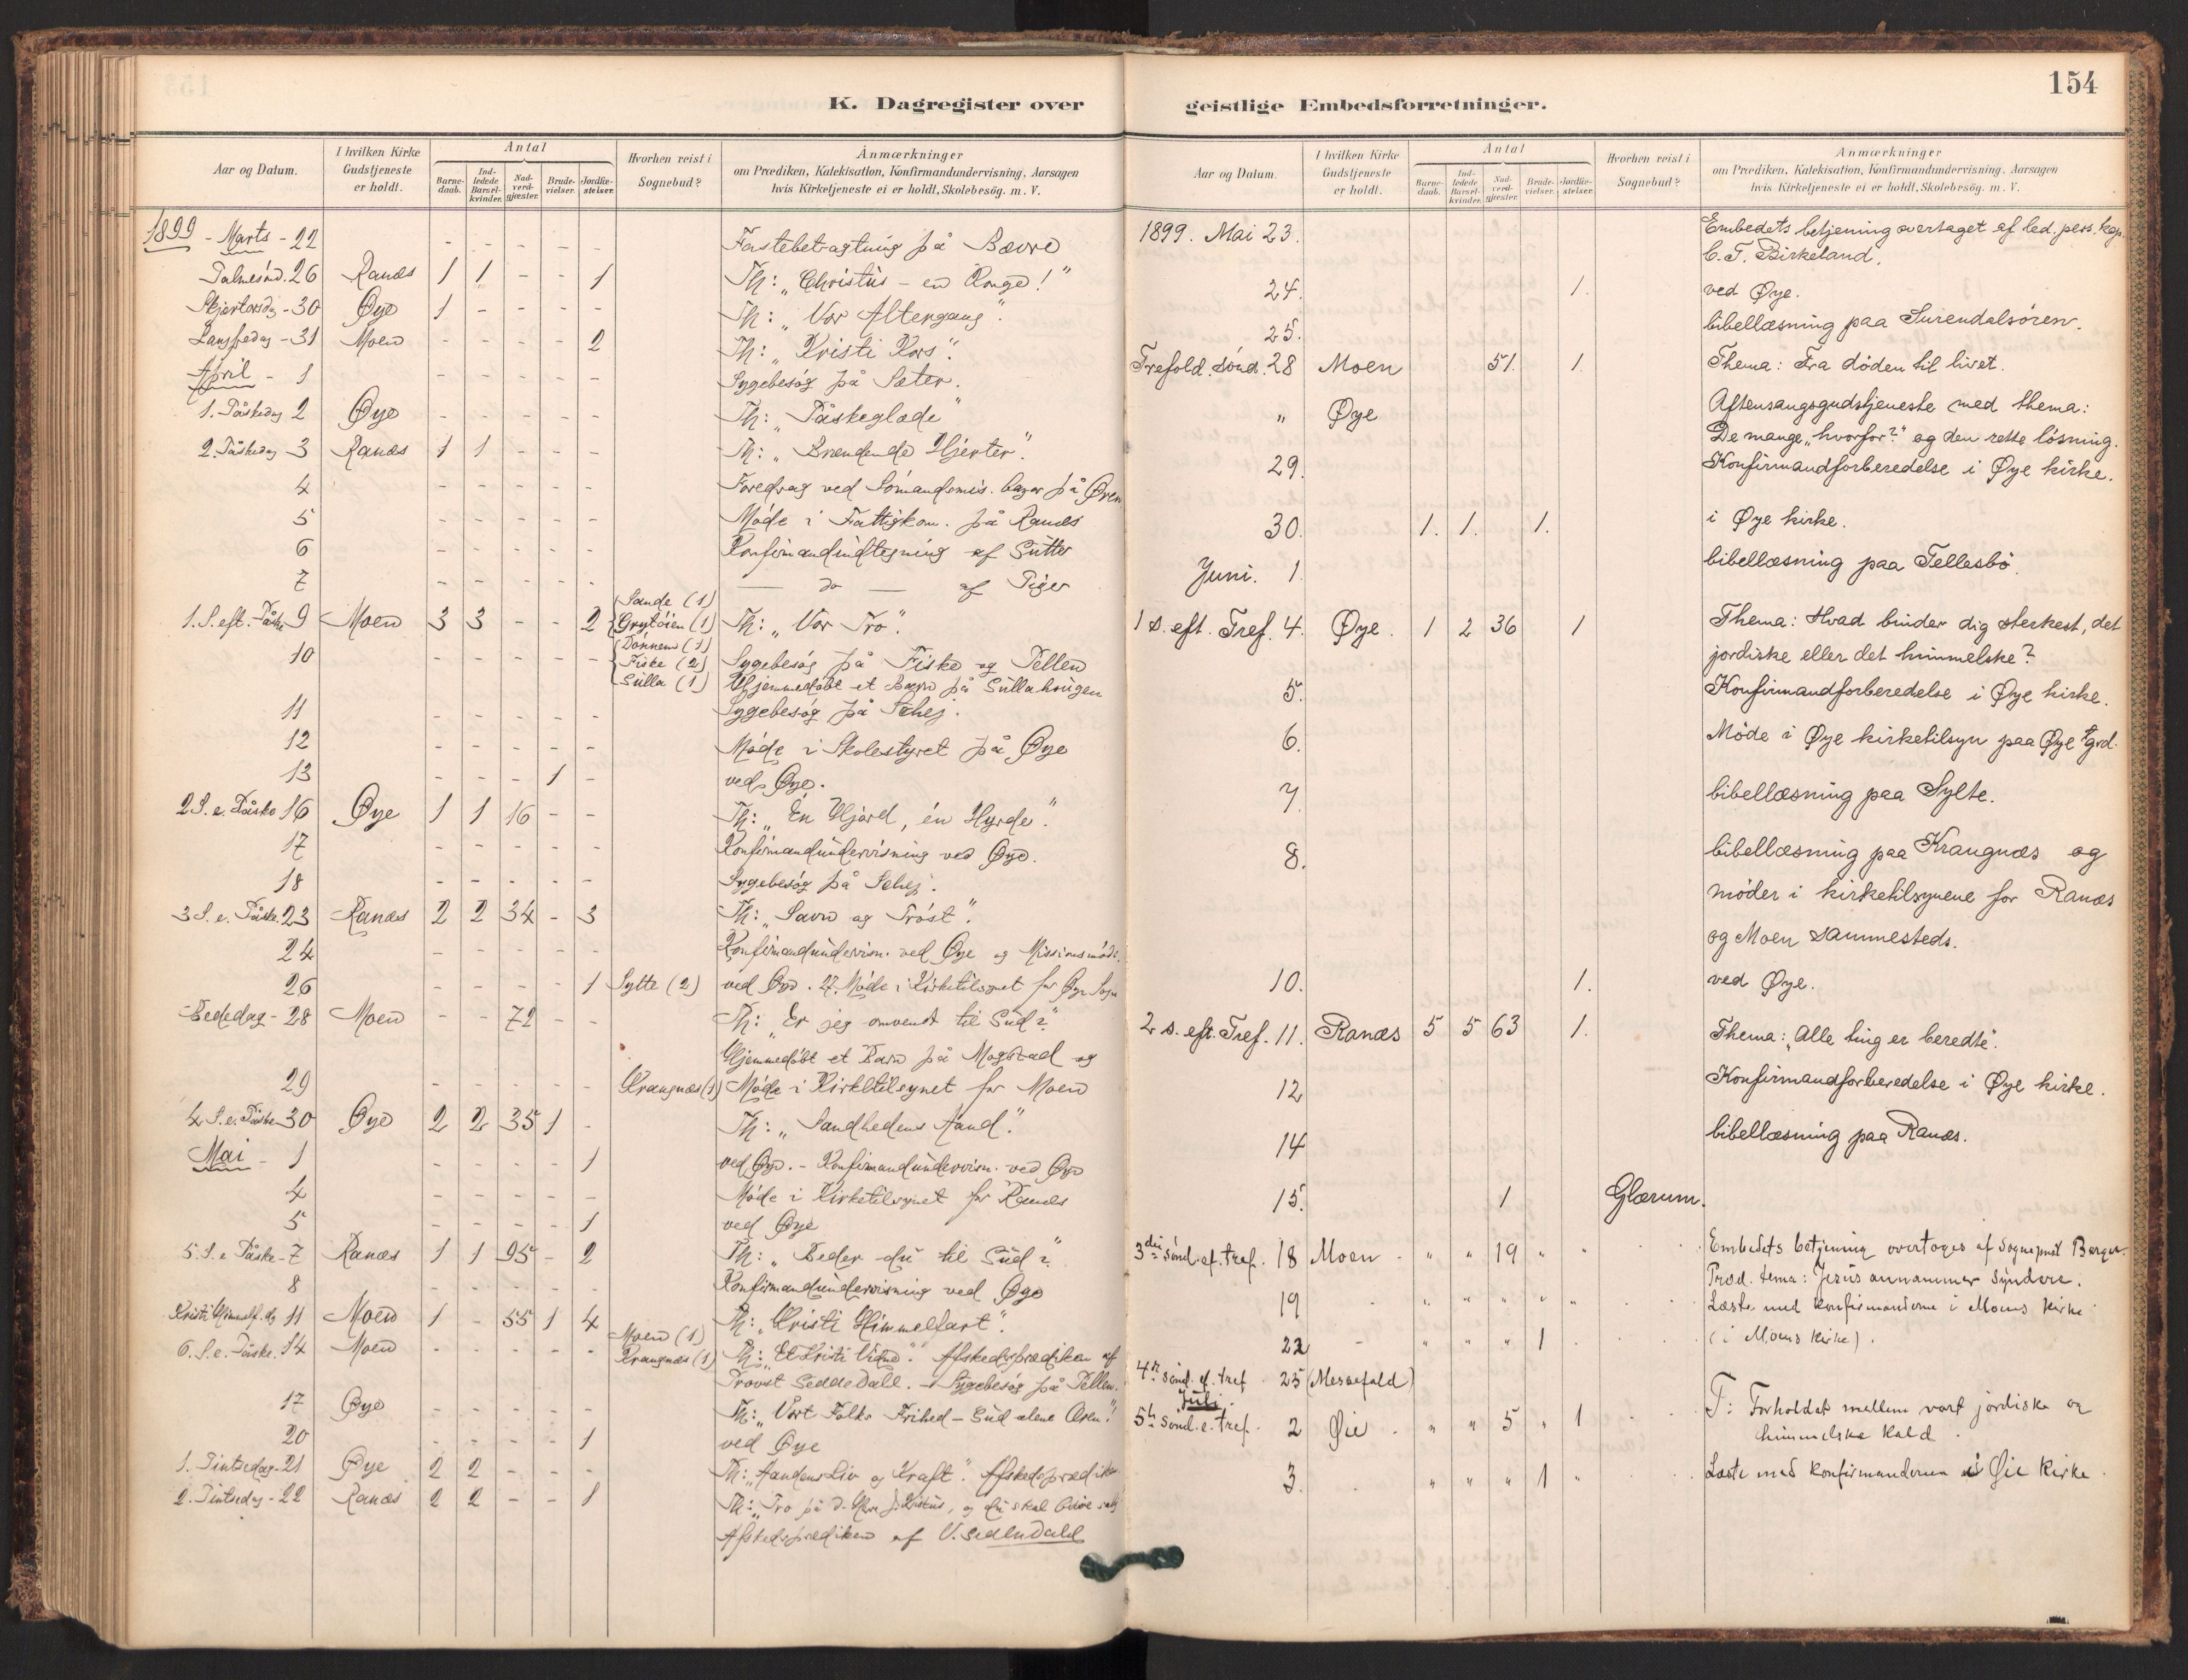 154
K. Dagregister over geistlige Embedsforretninger.
Aar og Datum. I hvilken Kirke Gudstjeneste er holdt. Antal Barne-daab. Ind-ledede Barsel-kvinder. Nad-verd-gjæster. Brude-vielser. Jordfæ-stelser. Hvorhen reist i Sognebud? Anmærkninger om Prædiken, Katekisation, Konfirmandundervisning, Aarsagen hvis Kirketjeneste ei er holdt, Skolebesög. m. V.
1899 - Marts - 22 - - - - - Fastebetragtning på Bævre
Palmesönd. 26 Ranæs 1 1 - - 1 Th: „Christus - en Konge!"
Skjærtorsdag - 30 Øye 1 - - - - Th: „Vor Altergang".
Langfredag - 31 Moen - - - - 2 Th: „Kristi Kors".
April - 1 - - - - - Sygebesög på Sæter.
1. Påskedag 2 Øye - - - - - Th: „Påskeglæde"
2. Påskedag 3 Ranæs 1 1 - - - Th: „Brændende Hjerter".
4 - - - - - Foredrag ved Sömandsmis. bazar på Ören
5 - - - - - Möde i Fattigkom. på Ranæs
6 - - - - - Konfirmandindtegning af Gutter
7 - - - - - — do — af Piger
1. S. eft. Påske 9 Moen 3 3 - - 2 Sande (1) Grytöien (1) Th: „Vor Tro".
10 - - - - - Dönnem (1) Fiske (2) Sygebesög på Fiske og Tellen
Sulla (1) Hjemmedöbt et Barn på Sullahaugen
11 - - - - - Sygebesög på Schej.
12 - - - - - Möde i Skolestyret på Øye
13 - - - 1 - ved Øye.
2 S. e. Påske 16 Øye 1 1 16 - - Th: „Én Hjord, én Hyrde".
17 - - - - - Konfirmandundervisning ved Øye.
18 - - - - - Sygebesög på Schej.
3 S. e. Påske. 23 Ranæs 2 2 34 - 3 Th: „Savn og Tröst".
24 - - - - - Konfirmandundervisn. ved Øye og Missionsmöde.
26 - - - - 1 Sylte (2) ved Øye. 27. Möde i Kirketilsynet for Øye Sogn
Bededag - 28 Moen - - 72 - - Th: „Er jeg omvendt til Gud?"
Hjemmedöbt et Barn på Mogstad og
29 - - - - - Krangnæs (1) Möde i Kirketilsynet for Moen
4 S. e. Påske 30 Øye 2 2 35 1 - Th: „Sandhedens Aand".
Mai - 1 - - - - 1 ved Øye. - Konfirmandundervisn. ved Øye
4 - - - - - Möde i Kirketilsynet for Ranæs
5 - - - - 1 ved Øye
5. S. e Påske - 7 Ranæs 1 1 95 - 2 Th: „Beder du til Gud?"
8 - - - - Konfirmandundervisning ved Øye
Kristi Himmelf. dg 11 Moen 1 - 55 1 4 Th: „Kristi Himmelfart".
6. S. e. Påske. 14 Moen - - - - - Moen (1) Krangnæs (1) Th: „Et Kristi Vidne". Afskedsprædiken af
Provst Seddedall. - Sygebesög på Tellen.
17 Øye - - - - - Th: „Vort Folks Frihed - Gud alene Æren!"
20 - - - - 1 ved Øye
1. Pintsedag - 21 Øye 2 2 - - - Th: „Aandens Liv og Kraft". Afskedsprædiken
2. Pintsedag - 22 Ranæs 2 2 - - 1 Th: „Tro på d. Herre J. Kristus, og du skal blive
Afskedsprædiken af
Aar og Datum. I hvilken Kirke Gudstjeneste er holdt. Antal Barne-daab. Ind-ledede Barsel-kvinder. Nad-verd-gjæster. Brude-vielser. Jordfæ-stelser. Hvorhen reist i Sognebud? Anmærkninger om Prædiken, Katekisation, Konfirmandundervisning. Aarsagen hvis Kirketjeneste ei er holdt, Skolebesög. m. V.
1899. Mai 23. Embedets betjening overtaget af led. pers. kap.
C. T. Birkeland.
24. 1. ved Øye.
25. bibellæsning paa Surendalsören.
Trefold. sönd. 28 Moen 51. 1. Thema: Fra döden til livet.
" Øye Aftensangsgudstjeneste med thema:
De mange „hvorfor?" og den rette lösning.
29. Konfirmandforberedelse i Øye kirke.
30. 1. 1. 1. i Øye kirke.
Juni. 1. bibellæsning paa Tellesbö.
1 s. eft. Tref. 4. Øye. 1 2 36 1 Thema: Hvad binder dig sterkest, det
jordiske eller det himmelske?
5. Konfirmandforberedelse i Øye kirke.
6. Möde i Øye kirketilsyn paa Øye pgrd.
7. bibellæsning paa Sylte.
8. bibellæsning paa Krangnæs og
möder i kirketilsynene for Ranæs
og Moen sammesteds.
10. 1. ved Øye.
2 s. eft. Tref. 11. Ranæs 5 5 63 1. Thema: „Alle ting er beredte".
12 Konfirmandforberedelse i Øye kirke.
14 bibellæsning paa Ranæs.
15. 1 Glærum.
3die sönd. ef. tref. 18 Moen " " 19 " " Embedets betjening overtages af Sogneprest
Præd. tema: Jesus annammer syndere.
19 " " " " " Læste med konfirmanderne i Moens kirke
22 " " " 1 (i Moens kirke).
4de sönd. ef. tref 25 (Messefald)
Juli
5te sönd. e. tref. 2 Øie " " 5 " 1 T: Forholdet mellem vort jordiske og
himmelske kald.
3. " " " 1 " Læste med konfirmanderne i Øie kirke.